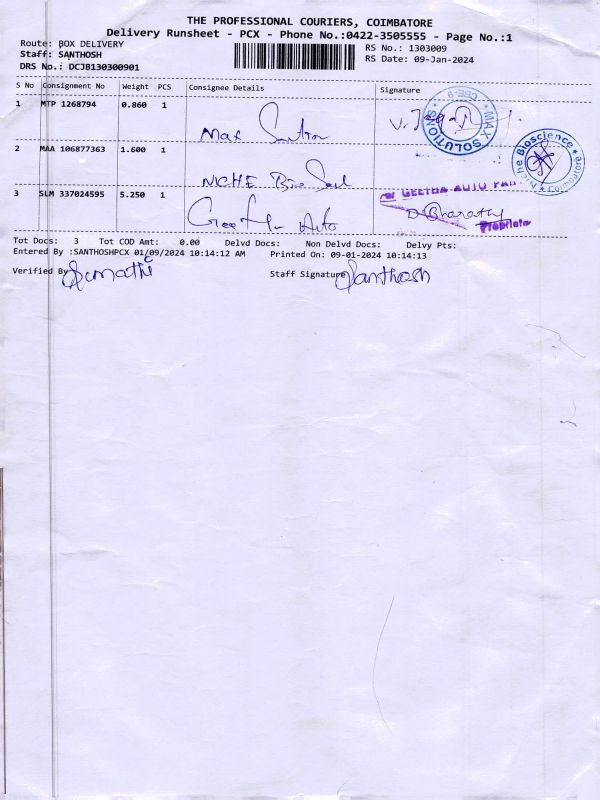 THE PROFESSIONAL COURIERS, COIMBATORE
Delivery Runsheet - PCX - Phone No.:0422-3505555 - Page No.:1
Route: BOX DELIVERY RS No.: 1303009
Staff: SANTHOSH RS Date: 09-Jan-2024
DRS No.: DCJB130300901
S No Consignment No Weight PCS Consignee Details Signature
1 MTP 1268794 0.860 1
Max V. Jaga
MAX SOLUTIONS CBE-9
2 MAA 106877363 1.600 1
NICHE Bio
Niche Bioscience Coimbatore
3 SLM 337024595 5.250 1
Geetha Auto
For GEETHA AUTO
D Bharathy
Proprietor
Tot Docs: 3 Tot COD Amt: 0.00 Delvd Docs: Non Delvd Docs: Delvy Pts:
Entered By :SANTHOSHPCX 01/09/2024 10:14:12 AM Printed On: 09-01-2024 10:14:13
Verified By Sumathi Staff Signature Santhosh